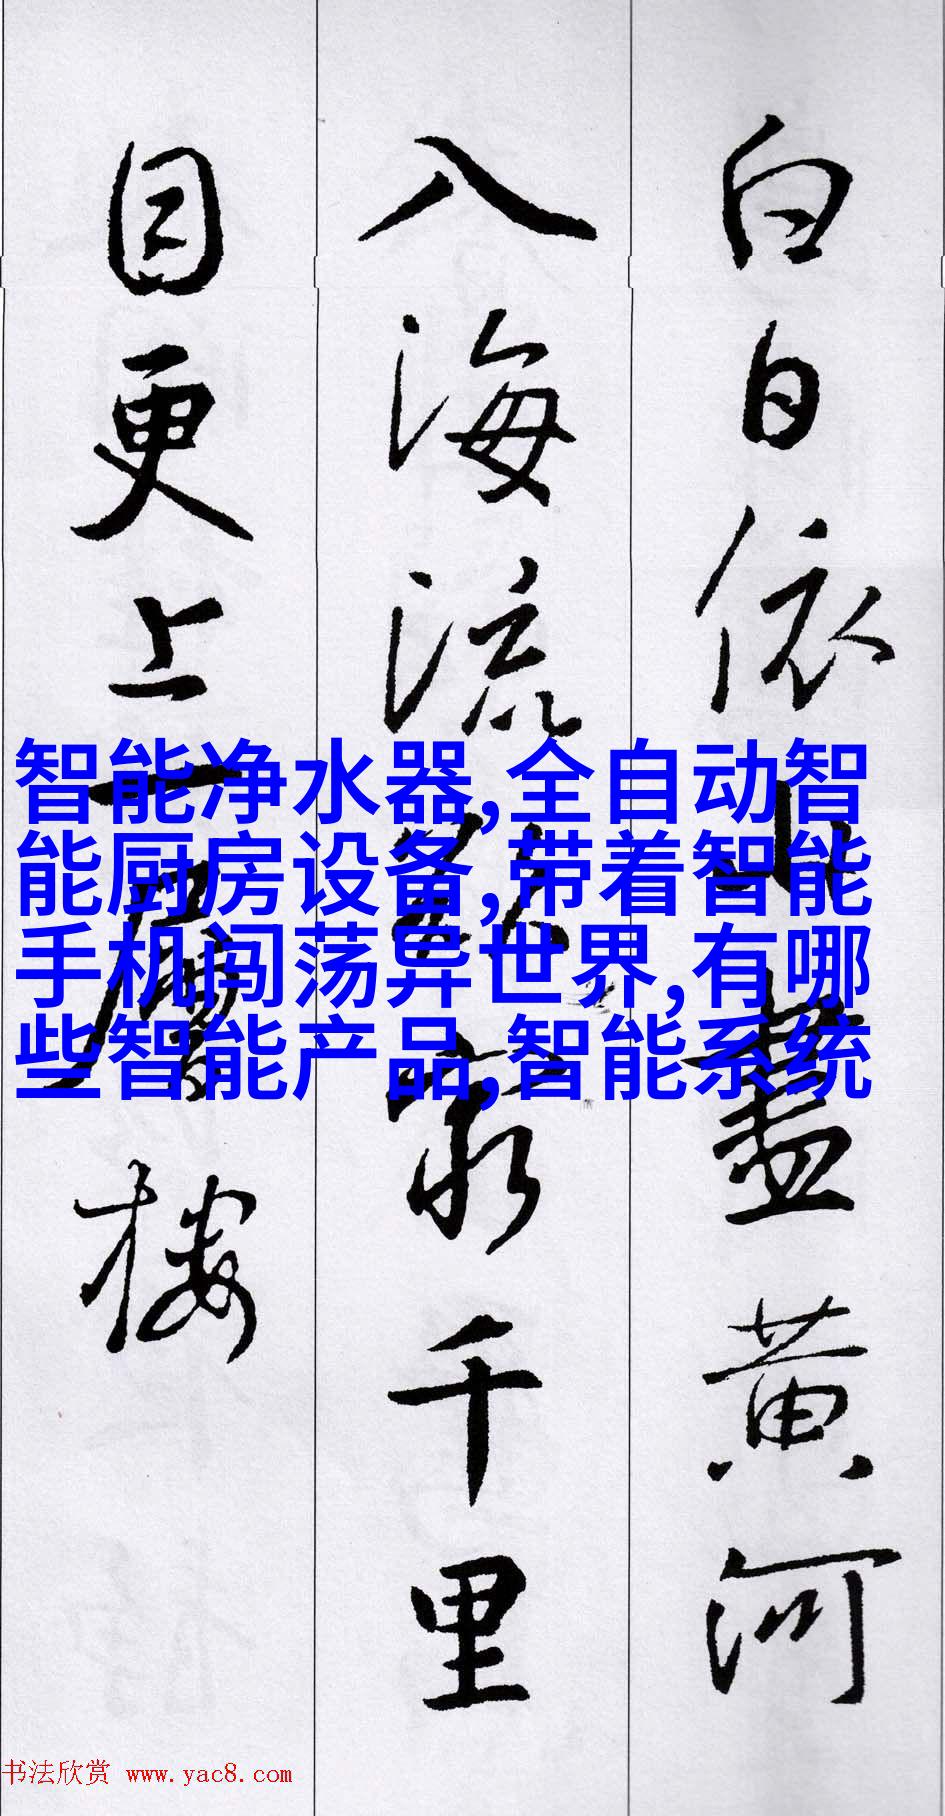 白日依山盡黄河
入海流欲窮千里
目更上一層楼
智能净水器,全自动智
能厨房设备,带着智能
手机闯荡异世界,有哪
些智能产品,智能系统
书法欣赏 www.yac8.com